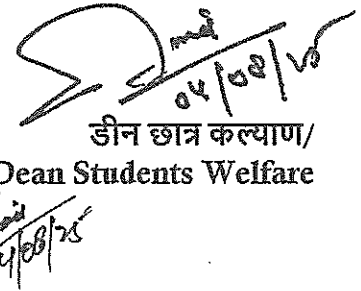 04/08/25
डीन छात्र कल्याण/
Dean Students Welfare
4/08/25